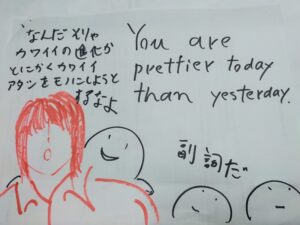 なんだそりゃ
カワイイの進化か
とにかくカワイイ
アタシをモハンしようと
するなよ
You are
prettier today
than yesterday.
副詞だ